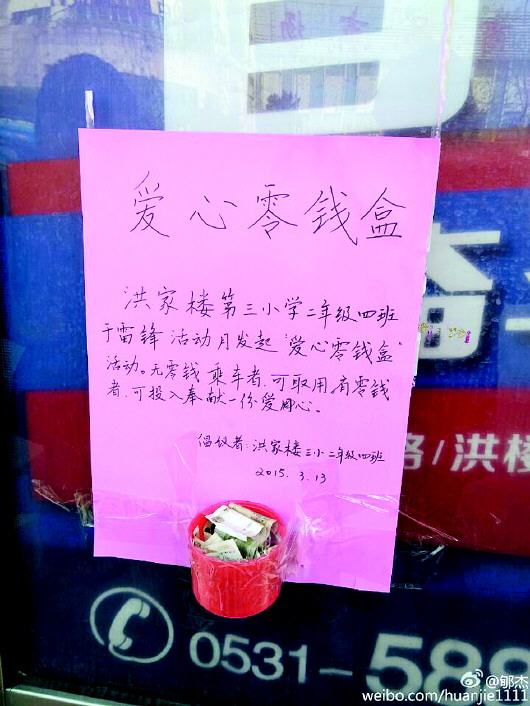 爱心零钱盒
洪家楼第三小学二年级四班
于雷锋活动月发起“爱心零钱盒”
活动。无零钱乘车者，可取用，有零钱
者，可投入奉献一份爱心。
倡仪者：洪家楼三小二年级四班
2015.3.13
路/洪楼
0531-588
@郇杰
weibo.com/huanjie1111